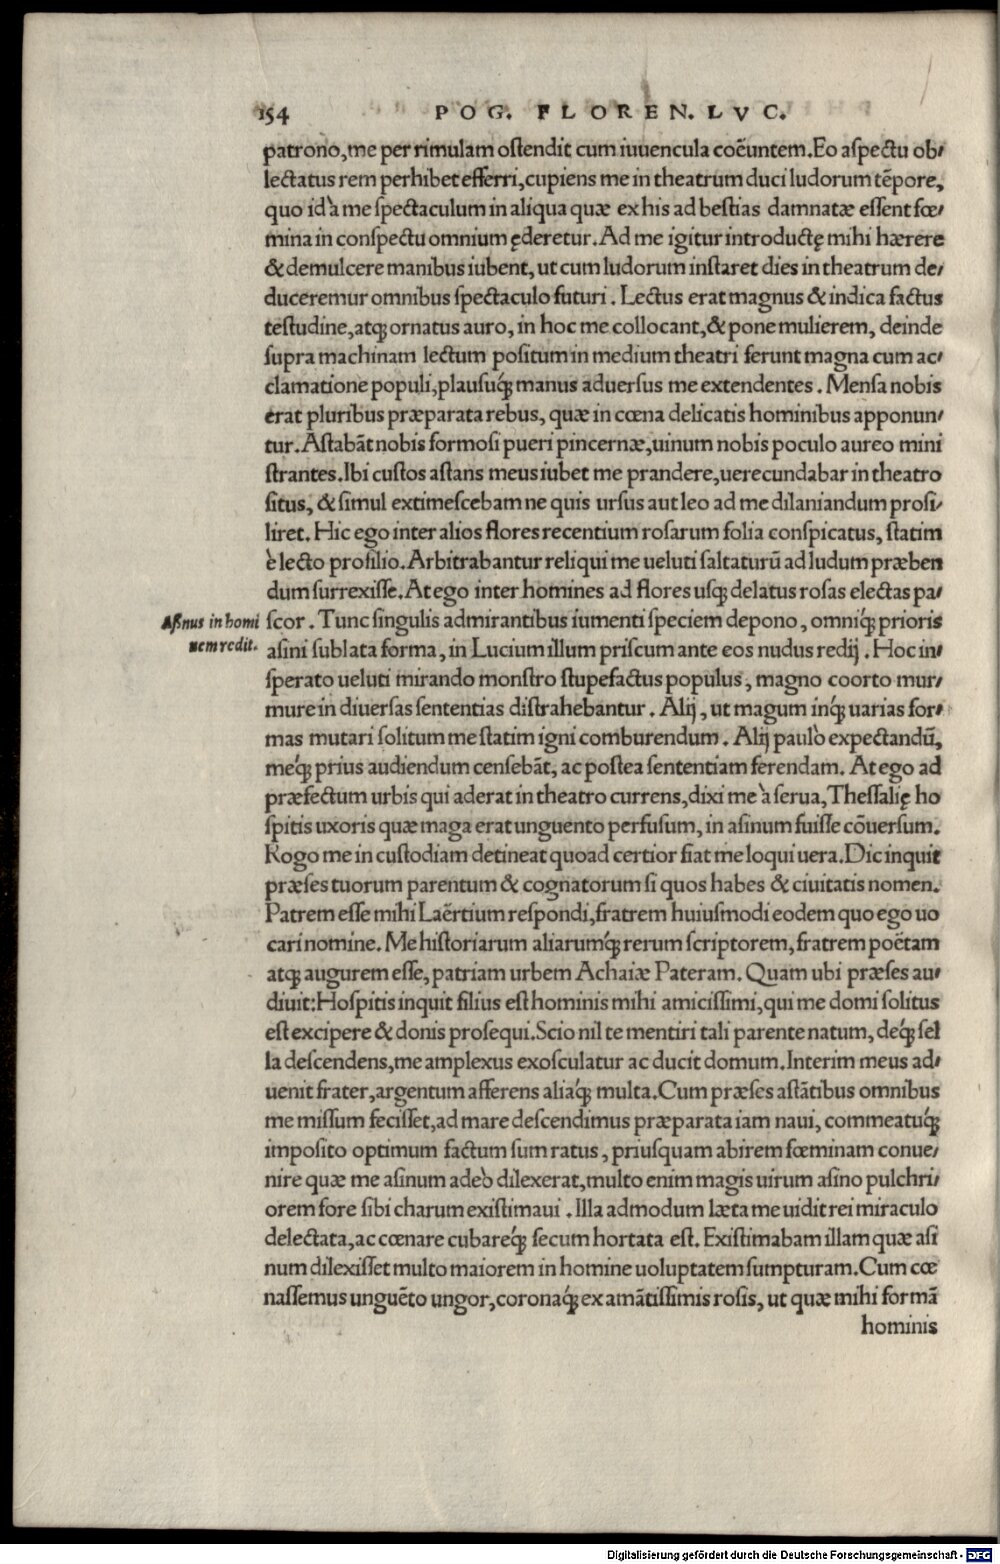 154 POG. FLOREN. LVC.
patrono, me per rimulam ostendit cum iuuencula coëuntem. Eo aspectu ob-
lectatus rem perhibet efferri, cupiens me in theatrum duci ludorum tẽpore,
quo id à me spectaculum in aliqua quæ ex his ad bestias damnatæ essent fœ-
mina in conspectu omnium ęderetur. Ad me igitur introductę mihi hærere
& demulcere manibus iubent, ut cum ludorum instaret dies in theatrum de-
duceremur omnibus spectaculo futuri. Lectus erat magnus & indica factus
testudine, atq; ornatus auro, in hoc me collocant, & pone mulierem, deinde
supra machinam lectum positum in medium theatri ferunt magna cum ac-
clamatione populi, plausuq́; manus aduersus me extendentes. Mensa nobis
erat pluribus præparata rebus, quæ in cœna delicatis hominibus apponun-
tur. Astabãt nobis formosi pueri pincernæ, uinum nobis poculo aureo mini
strantes. Ibi custos astans meus iubet me prandere, uerecundabar in theatro
situs, & simul extimescebam ne quis ursus aut leo ad me dilaniandum prosi-
liret. Hic ego inter alios flores recentium rosarum folia conspicatus, statim
è lecto prosilio. Arbitrabantur reliqui me ueluti saltaturũ ad ludum præben
dum surrexisse. At ego inter homines ad flores usq; delatus rosas electas pa-
Asinus in homi
nem redit.
scor. Tunc singulis admirantibus iumenti speciem depono, omniq́; prioris
asini sublata forma, in Lucium illum priscum ante eos nudus redij. Hoc in-
sperato ueluti mirando monstro stupefactus populus, magno coorto mur-
mure in diuersas sententias distrahebantur. Alij, ut magum inq́; uarias for-
mas mutari solitum me statim igni comburendum. Alij paulò expectandũ,
meq́; prius audiendum censebãt, ac postea sententiam ferendam. At ego ad
præfectum urbis qui aderat in theatro currens, dixi me à serua, Thessalię ho
spitis uxoris quæ maga erat unguento perfusum, in asinum fuisse cõuersum.
Rogo me in custodiam detineat quoad certior fiat me loqui uera. Dic inquit
præses tuorum parentum & cognatorum si quos habes & ciuitatis nomen.
Patrem esse mihi Laërtium respondi, fratrem huiusmodi eodem quo ego uo
cari nomine. Me historiarum aliarumq́; rerum scriptorem, fratrem poëtam
atq; augurem esse, patriam urbem Achaiæ Pateram. Quam ubi præses au-
diuit: Hospitis inquit filius est hominis mihi amicissimi, qui me domi solitus
est excipere & donis prosequi. Scio nil te mentiri tali parente natum, deq́; sel
la descendens, me amplexus exosculatur ac ducit domum. Interim meus ad-
uenit frater, argentum afferens aliaq́; multa. Cum præses astãtibus omnibus
me missum fecisset, ad mare descendimus præparata iam naui, commeatuq́;
imposito optimum factum sum ratus, priusquam abirem fœminam conue-
nire quæ me asinum adeò dilexerat, multo enim magis uirum asino pulchri-
orem fore sibi charum existimaui. Illa admodum læta me uidit rei miraculo
delectata, ac cœnare cubareq́; secum hortata est. Existimabam illam quæ asi
num dilexisset multo maiorem in homine uoluptatem sumpturam. Cum cœ
nassemus unguẽto ungor, coronaq́; ex amãtissimis rosis, ut quæ mihi formã
hominis
Digitalisierung gefördert durch die Deutsche Forschungsgemeinschaft - DFG